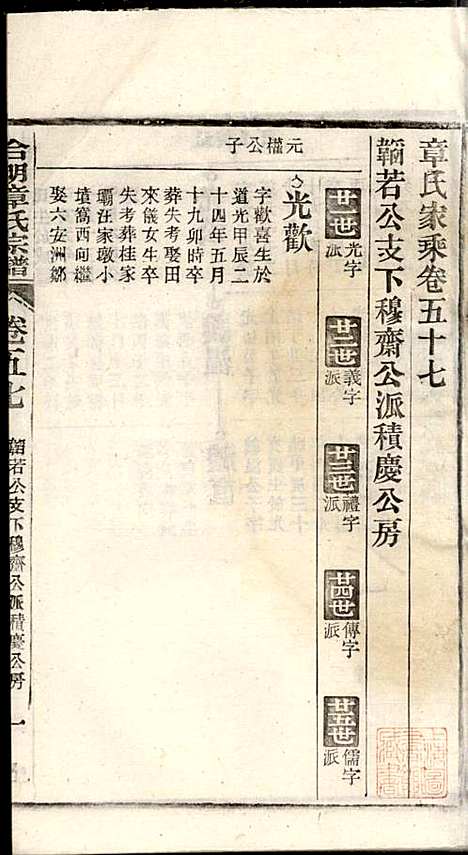 章氏家乘卷五十七
韜若公支下穆齋公派積慶公房
廿一世 光字派
廿二世 義字派
廿三世 禮字派
廿四世 傳字派
廿五世 儒字派
元權公子
光歡
字歡喜生於
道光甲辰二
十四年五月
十九卯時卒
葬失考娶田
來儀女生卒
失考葬桂家
壩汪家墩小
墳窩西向繼
娶六安洲鄒
合朙章氏宗譜
卷五七
韜若公支下穆齋公派積慶公房
一